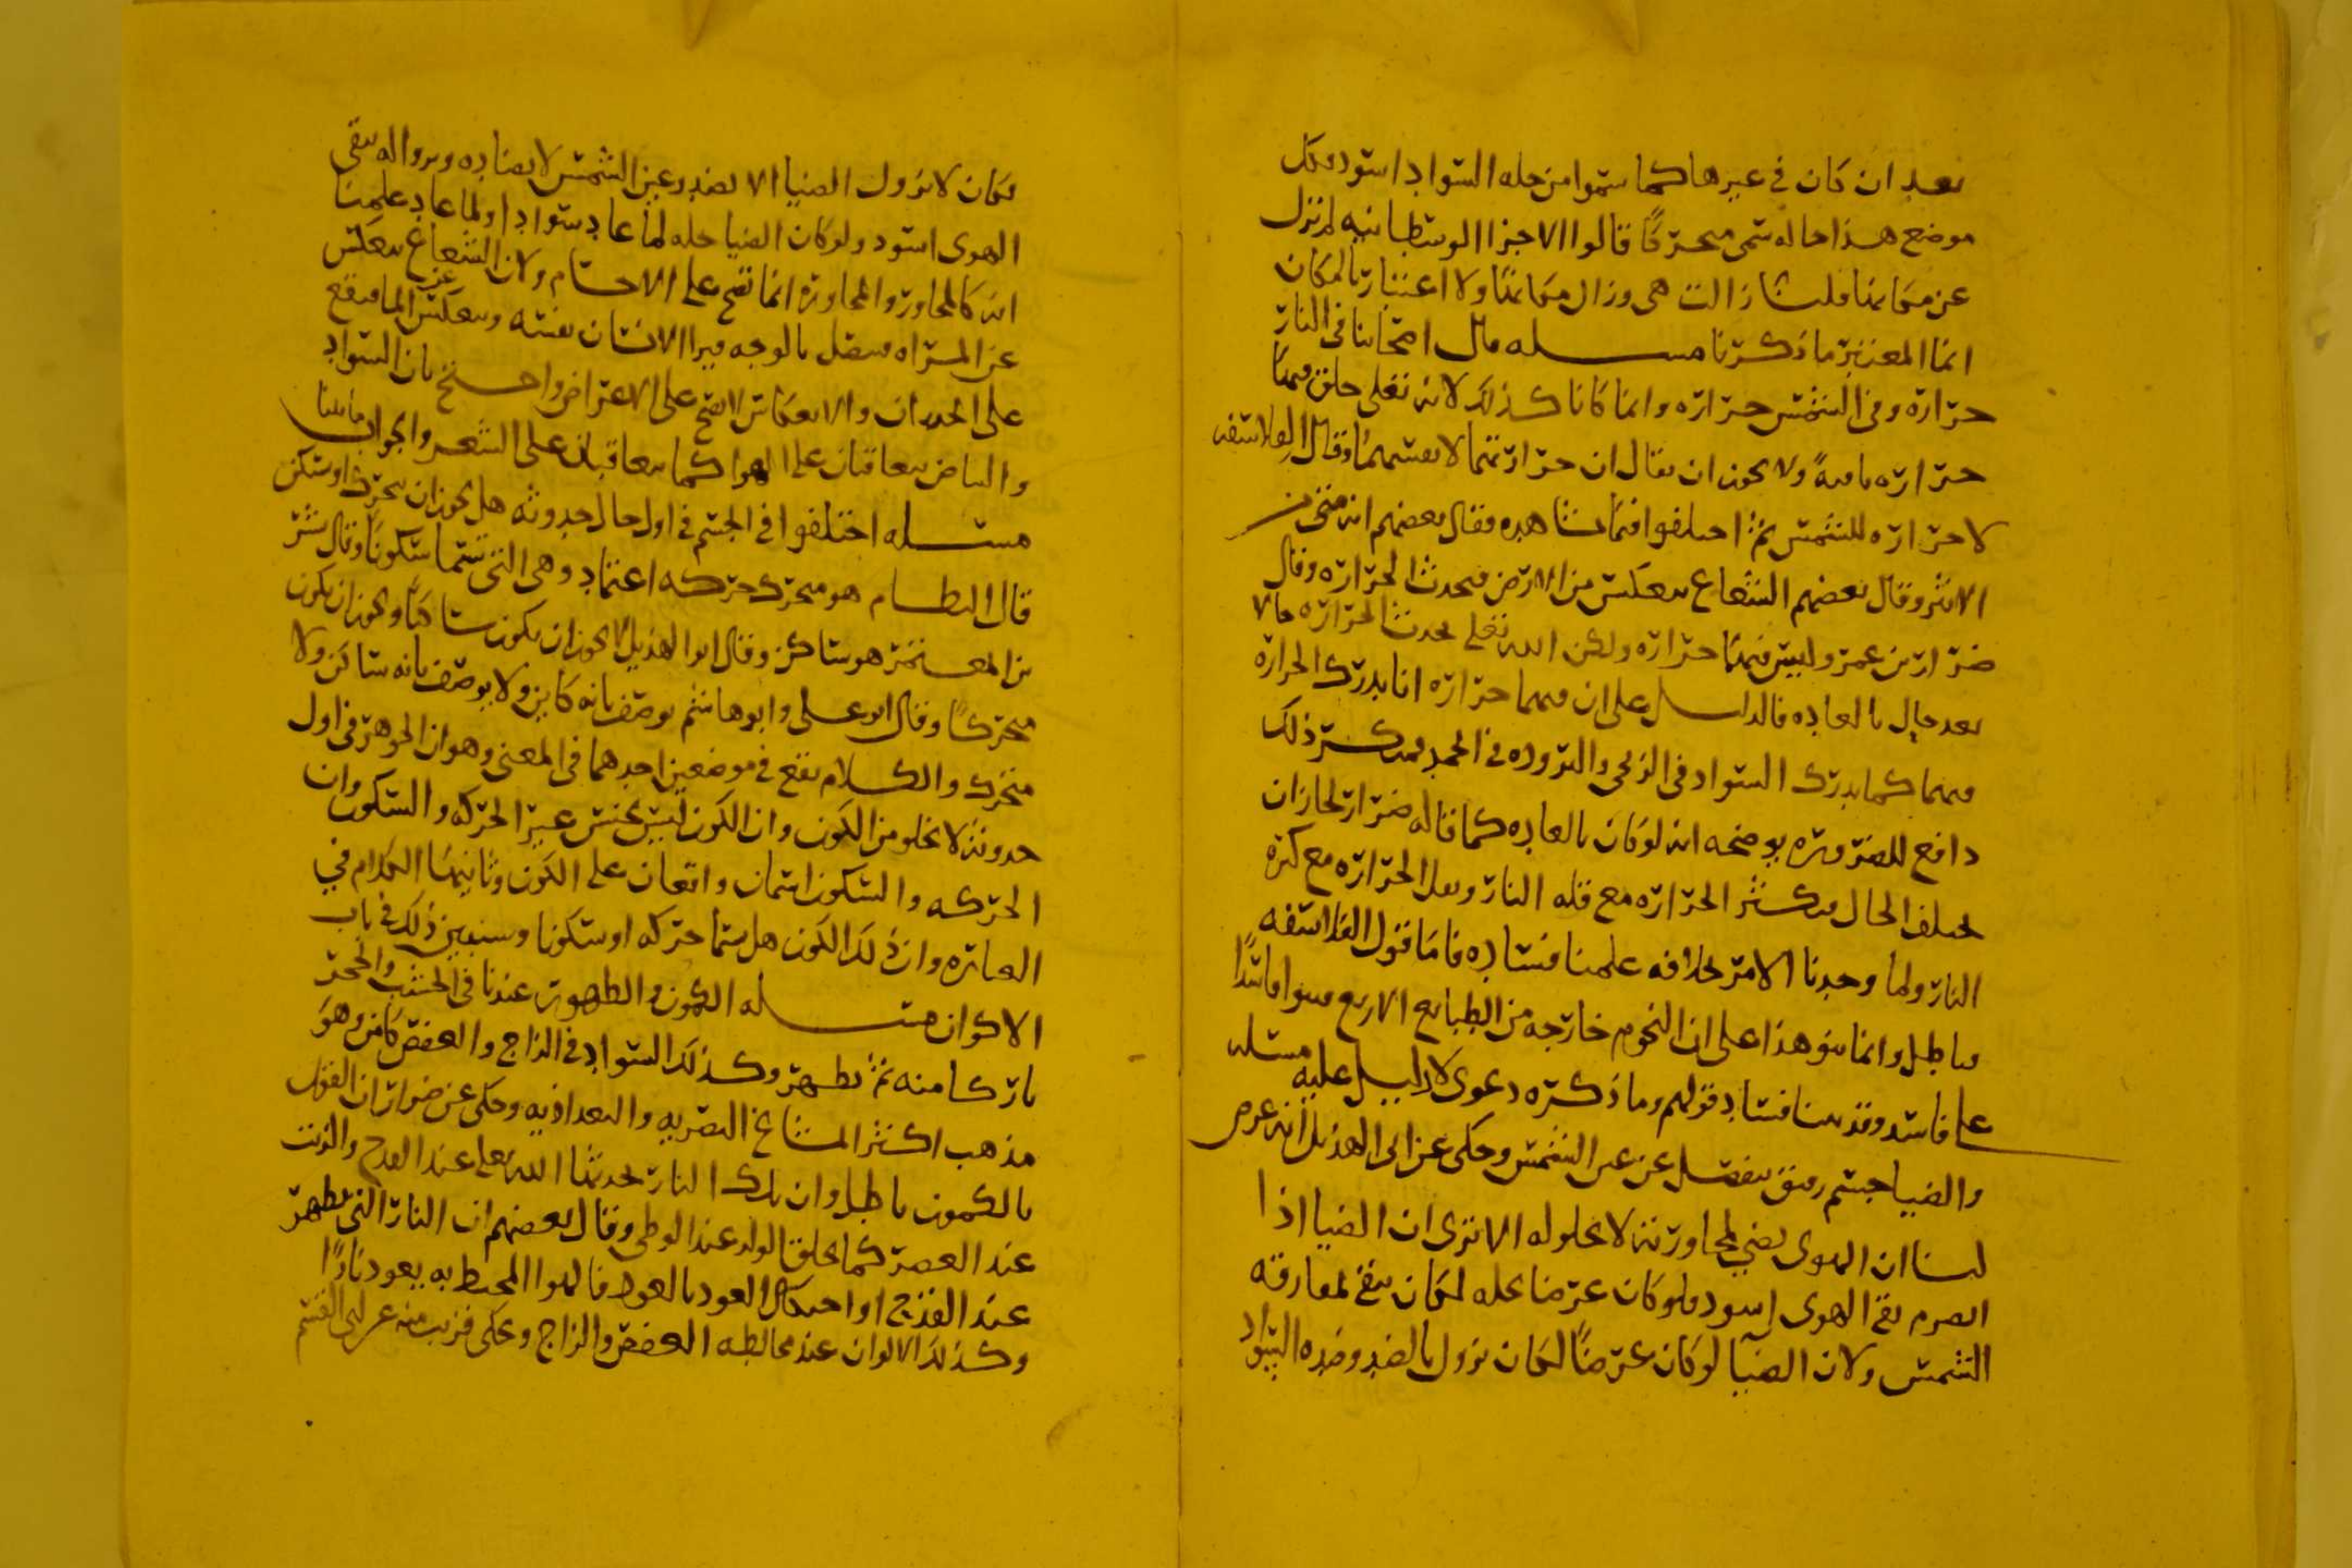 بعد ان كان في غيرها كما سموا من حله السواد اسود فكل
موضع هذا حاله سمي متحركا قالوا الاجزا الوسطانيه لم تزل
عن مكانها قلنا زالت هي وزال مكانها ولا اعتبار بالمكان
انما المعتبر ما ذكرنا مسله قال اصحابنا في النار
حراره وفي الشمس حراره وانما كانا كذلك لانه تعلى خلق فيهما
حراره باقيه ولا يجوز ان يقال ان حرارتهما لا تقسمها وقال الفلاسفه
لا حراره للشمس ثم اختلفوا فيما نشاهده فقال بعضهم انه من
الاثر وقال بعضهم الشعاع ينعكس من الارض فتحدث الحراره وقال
ضرار بن عمرو ليس فيهما حراره ولكن الله تعلى يحدث الحراره حالا
بعد حال بالعاده فالدليل على ان فيهما حراره انا ندرك الحراره
فيهما كما يدرك السواد في الزنجي والبروده في الجمد فمنكر ذلك
دافع للضروره يوضحه انه لو كان بالعاده كما قاله ضرار لجاز ان
يختلف الحال فيكثر الحراره مع قله النار ويقل الحراره مع كثره
النار ولما وجدنا الامر بخلافه علمنا فساده فاما قول الفلاسفه
باطل وانما بنو هذا على ان النجوم خارجه من الطبايع الاربع فبنوا فاسدا
على فاسد وقد بينا فساد قولهم وما ذكره دعوى لا دليل عليه مسله
والضيا جسم رقيق ينفصل عن عين الشمس وحكي عن ابي الهذيل انه عرض
لنا ان الهوى يضي لمجاورته لا لحلوله الا ترى ان الضيا اذا
انصرم بقي الهوى اسود فلو كان عرضا يحله لكان يبقى لمفارقه
الشمس ولان الضيا لو كان عرضا لكان يزول بالضد وضده السواد
فكان لا يزول الضيا الا بضد وعين الشمس لا يضاده وبزواله يبقى
الهوى اسود ولو كان الضيا حله لما عاد سوادا ولما عاد علمنا
انه كالمجاور والمجاوره انما تصح على الاجسام ولان الشعاع ينعكس
عن المراه فيتصل بالوجه فيرا الانسان نفسه وينعكس عن الما فيقع
على الجدران والانعكاس لا يصح على الاعراض واحتج بان السواد
والبياض يتعاقبان على الهوا كما يتعاقبان على الشعر والجواب ما بينا
مسله اختلفوا في الجسم في اول حال حدوثه هل يجوز ان يتحرك او يسكن
قال النظام هو متحرك حركه اعتماد وهي التي نسميها سكونا وقال بشر
بن المعتمر هو ساكن وقال ابو الهذيل لا يجوز ان يكون ساكنا ويجوز ان يكون
متحركا وقال ابو علي وابو هاشم يوصف بانه كاين ولا يوصف بانه ساكن ولا
متحرك والكلام يقع في موضعين احدهما في المعنى وهو ان الجوهر في اول
حدوثه لا يخلو من الكون وان الكون ليس بجنس غير الحركه والسكون وان
الحركه والسكون اسمان واقعان على الكون وثانيهما الكلام في
العباره وان ذلك الكون هل يسما حركه او سكونا وسنبين ذلك في باب
الاكوان مسله الكمون والظهور عندنا في الخشب والحجر
نار كامنه ثم تظهر وكذلك السواد في الزاج والعفص كامن وهو
مذهب اكثر المشايخ البصريه والبغداذيه وحكي عن ضرار ان القول
بالكمون باطل وان تلك النار يحدثها الله تعلى عند القدح والزيت
عند العصر كما يخلق الولد عند الوطي وقال بعضهم ان النار التي تظهر
عند القدح او احتكاك العود بالعود فالهوا المحيط به يعود نارا
وكذلك الالوان عند مخالطه العفص والزاج ويحكى قريب منه عن ابي القسم